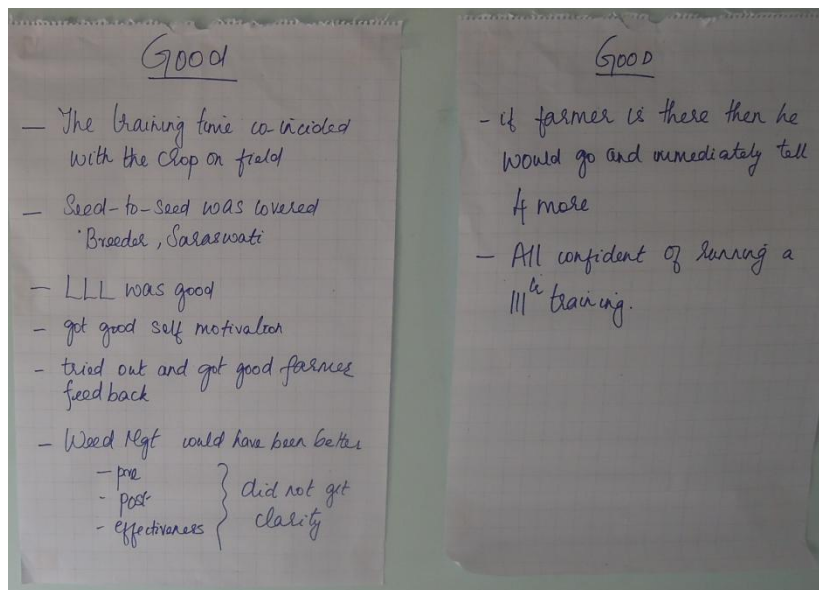 Good
— The training time co-incided
with the crop on field
— Seed-to-seed was covered
Breeder, Saraswati
— LLL was good
- got good self motivation
- tried out and got good farmer
feedback
— Weed Mgt could have been better
- pre
- post
- effectiveness
} did not get
clarity
GOOD
- if farmer is there then he
would go and immediately tell
4 more
- All confident of running a
training.